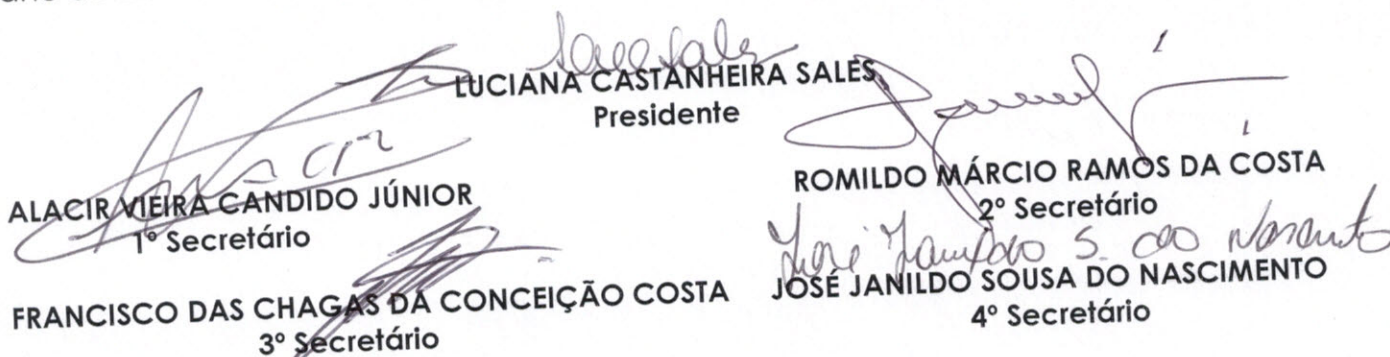 LUCIANA CASTANHEIRA SALES
Presidente
ALACIR VIEIRA CANDIDO JÚNIOR
1º Secretário
ROMILDO MÁRCIO RAMOS DA COSTA
2º Secretário
José Janildo S. do Nascimento
FRANCISCO DAS CHAGAS DA CONCEIÇÃO COSTA
3º Secretário
JOSÉ JANILDO SOUSA DO NASCIMENTO
4º Secretário